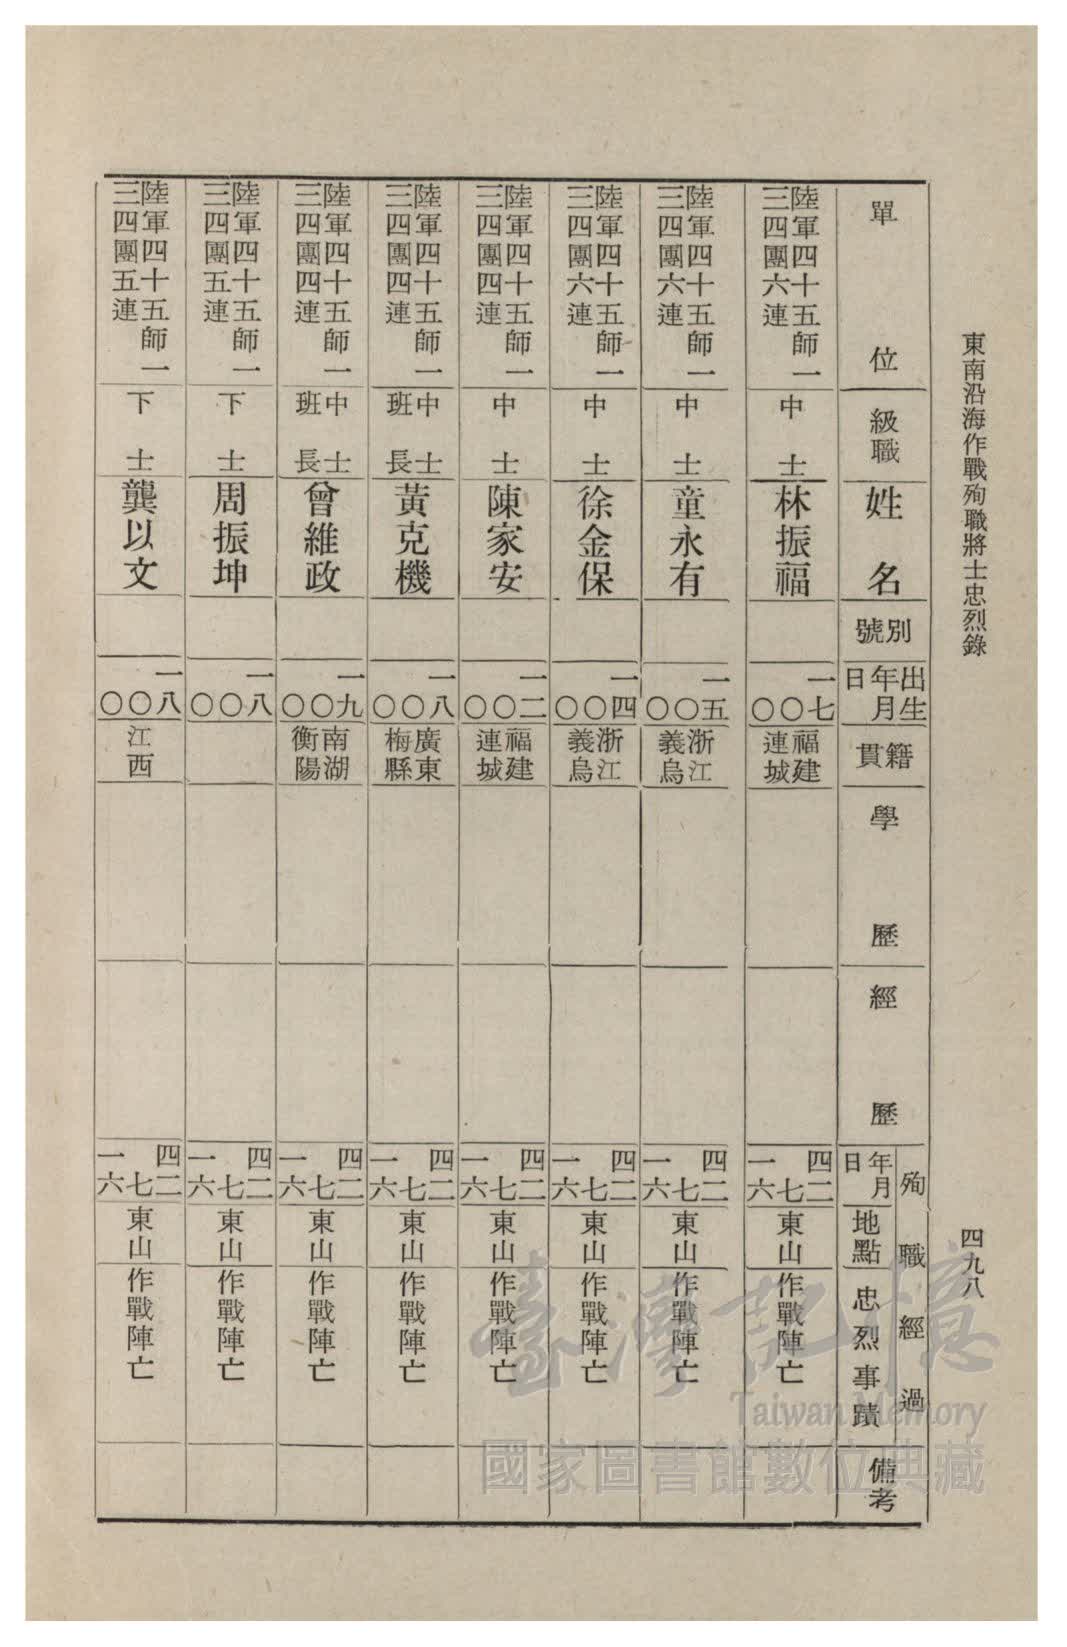 東南沿海作戰殉職將士忠烈錄
四九八
單位
級職
姓名
別號
出生年月日
籍貫
學歷
經歷
殉職經過
年月日
地點
忠烈事蹟
備考
陸軍四十五師一
三四團六連
中士
林振福
一七〇〇
福建
連城
四二
七
一六
東山
作戰陣亡
陸軍四十五師一
三四團六連
中士
童永有
一五〇〇
浙江
義烏
四二
七
一六
東山
作戰陣亡
陸軍四十五師一
三四團六連
中士
徐金保
一四〇〇
浙江
義烏
四二
七
一六
東山
作戰陣亡
陸軍四十五師一
三四團四連
中士
陳家安
一二〇〇
福建
連城
四二
七
一六
東山
作戰陣亡
陸軍四十五師一
三四團四連
中士
班長
黃克機
一八〇〇
廣東
梅縣
四二
七
一六
東山
作戰陣亡
陸軍四十五師一
三四團四連
中士
班長
曾維政
一九〇〇
南湖
衡陽
四二
七
一六
東山
作戰陣亡
陸軍四十五師一
三四團五連
下士
周振坤
一八〇〇
四二
七
一六
東山
作戰陣亡
陸軍四十五師一
三四團五連
下士
龔以文
一八〇〇
江西
四二
七
一六
東山
作戰陣亡
臺灣記憶
Taiwan Memory
國家圖書館數位典藏